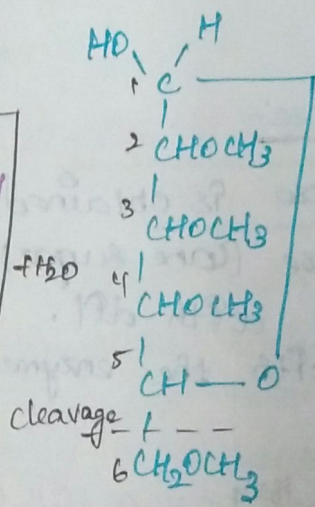 HO H
1 C
2 CHOCH3
3 CHOCH3
+H2O
4 CHOCH3
5 CH — O
cleavage
6 CH2OCH3